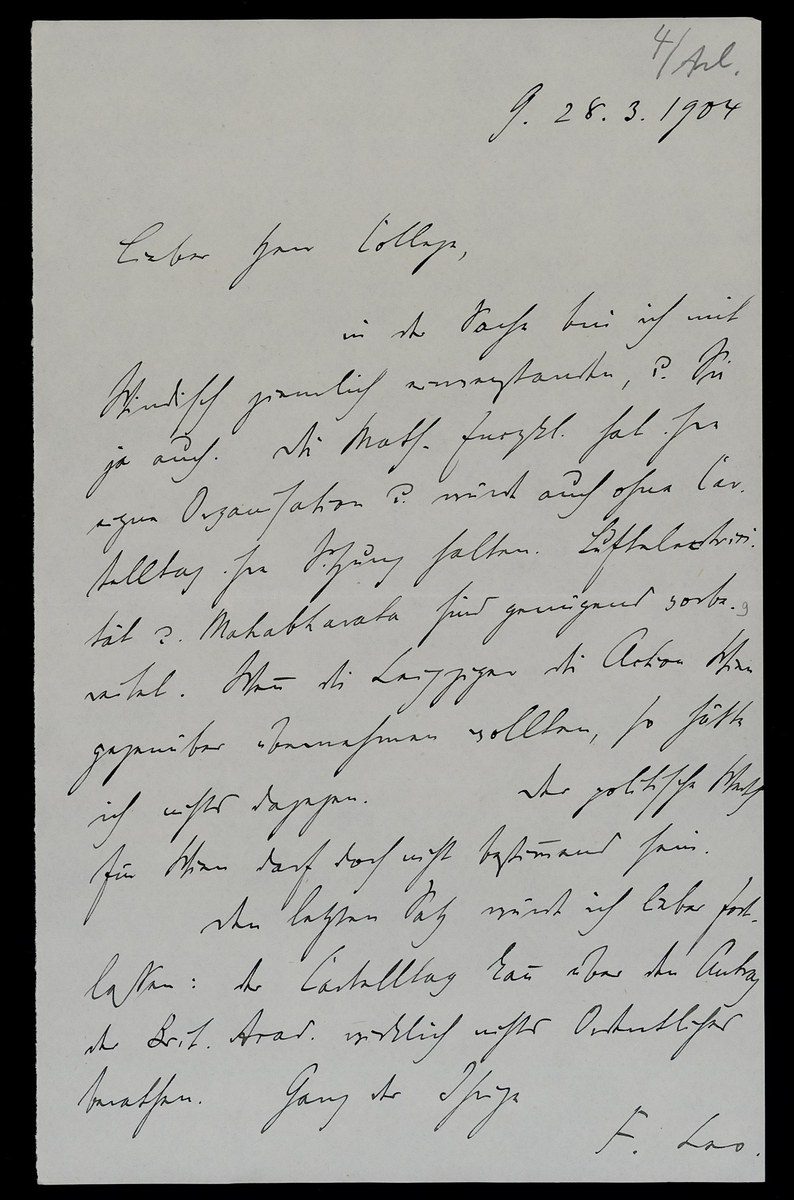 4/Arl.
G. 28. 3. 1904
Lieber Herr College,
in der Sache bin ich mit
Windisch ziemlich einverstanden, u. Sie
ja auch. Die Math. Encykl. hat ihre
eigne Organisation u. würde auch ohne Car-
telltag ihre Sitzung halten. Luftelectrici-
tät u. Mahabharata sind genügend vorbe-
reitet. Wen̄ die Leipziger die Action Wien
gegenüber übernehmen wollten, so hätte
ich nichts dagegen. Der politische
für Wien darf doch nicht bestim̄end sein.
Den letzten Satz würde ich lieber fort-
lassen: der Cartelltag kan̄ über den Antrag
der Brit. Acad. wirklich nichts Ordentliches
berathen. Ganz der Ihrige
F. Leo.